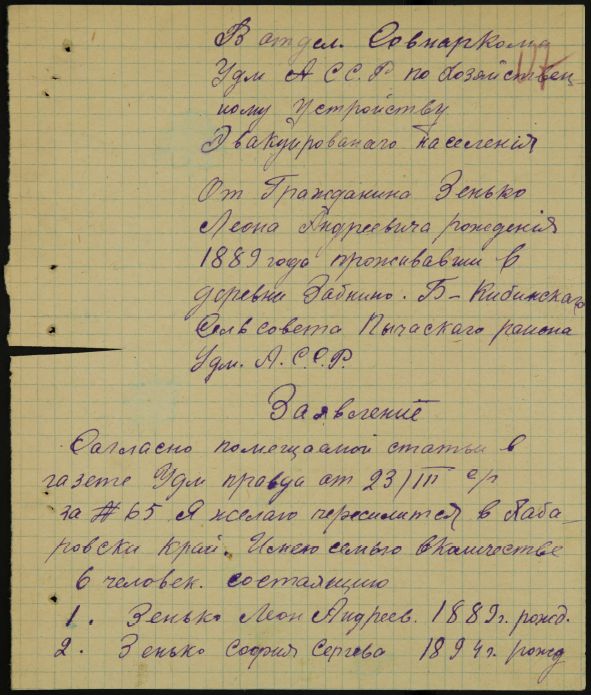 В отдел. Совнаркома
Удм АССР по хозяйствен-
ному устройству
Эвакуированаго населенія
От Гражданина Зенько
Леона Андреевича рожденія
1889 года проживавши в
деревни Забнино. Б-Кибинскаго
Сельсовета Пычаскаго раиона
Удм. А.С.С.Р.
Заявление
Сагласно помещаемой статьи в
газете Удм правда от 23/III с/г
за № 65 Я желаю пересилится в Хаба-
ровски край. Имею семью в количестве
6 человек. состаящию
1. Зенько Леон Андреев. 1889 г. рожд.
2. Зенько София Сергева 1894 г. рожд